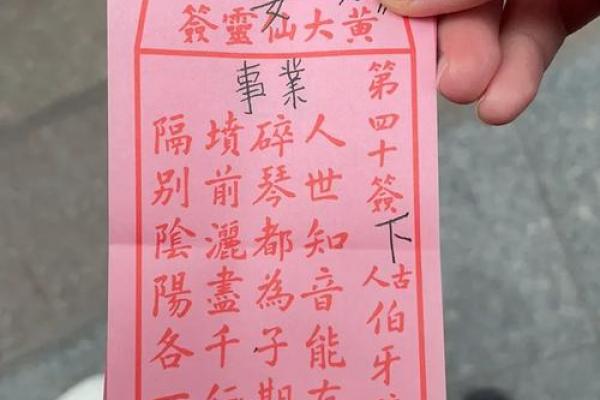 黃大仙靈簽
事業
第四十簽下
古人伯牙
人世知音能有
碎琴都為子期
墳前灑盡千行
隔別陰陽各